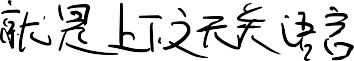 就是上下文无关语言